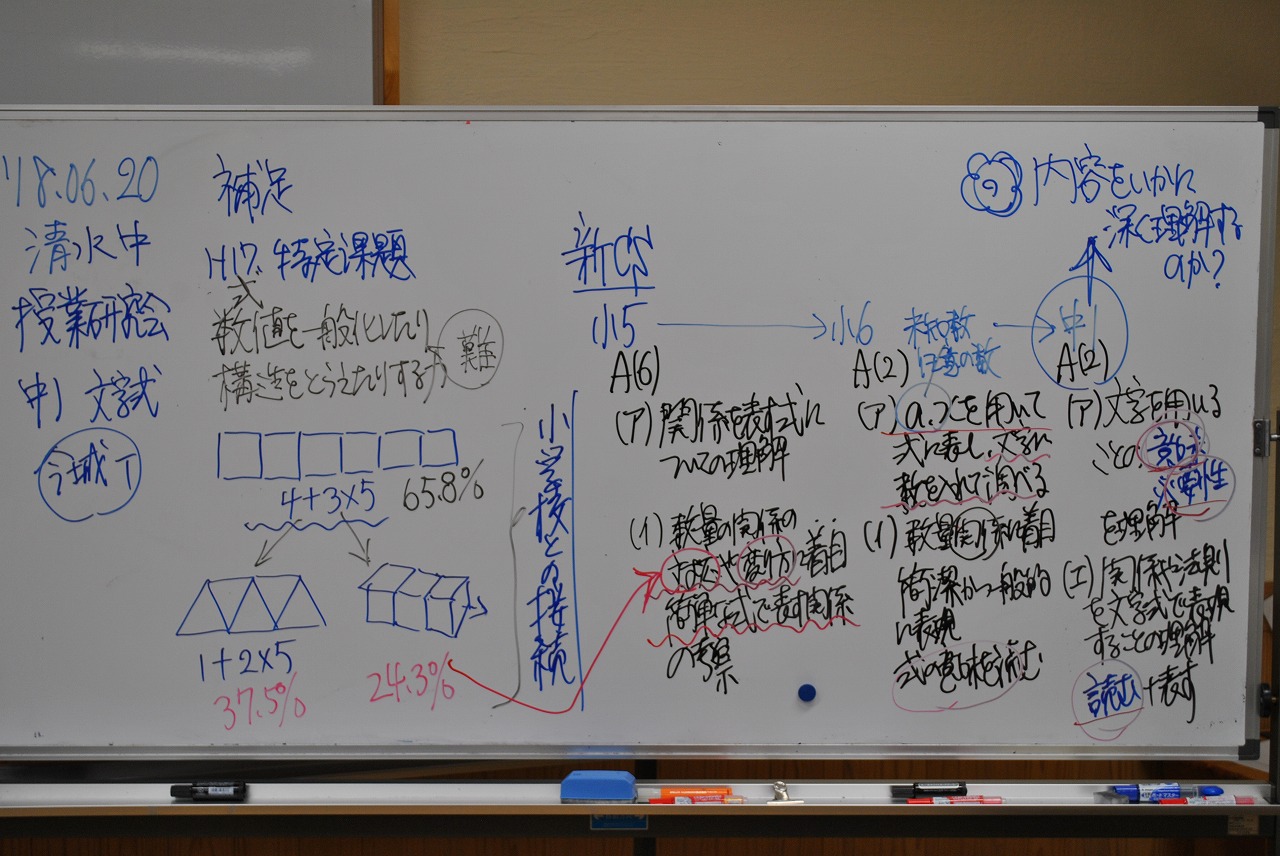 '18.06.20
清水中
授業研究会
中1 文字式
今城T
補足
H17. 特定課題
式
数値を一般化したり
構造をとらえたりする力
難
4+3×5
65.8%
1+2×5
37.5%
24.3%
小学校との接続
新CS
小5
A(6)
(ア) 関係を表す式に
ついての理解
(イ) 数量の関係の
対応や変り方に着目
簡単な式で表す関係
の考察
小6
未知の数
任意の数
A(2)
(ア) a,xを用いて
式に表し、文字に
数を入れて調べる
(イ) 数量関係に着目
簡潔かつ一般的
に表現
式の意味を読む
中1
A(2)
(ア) 文字を用いる
ことの
必要性
を理解
(エ) 関係や法則
を文字式で表現
することの理解
読む 表す
内容をいかに
深く理解する
のか?